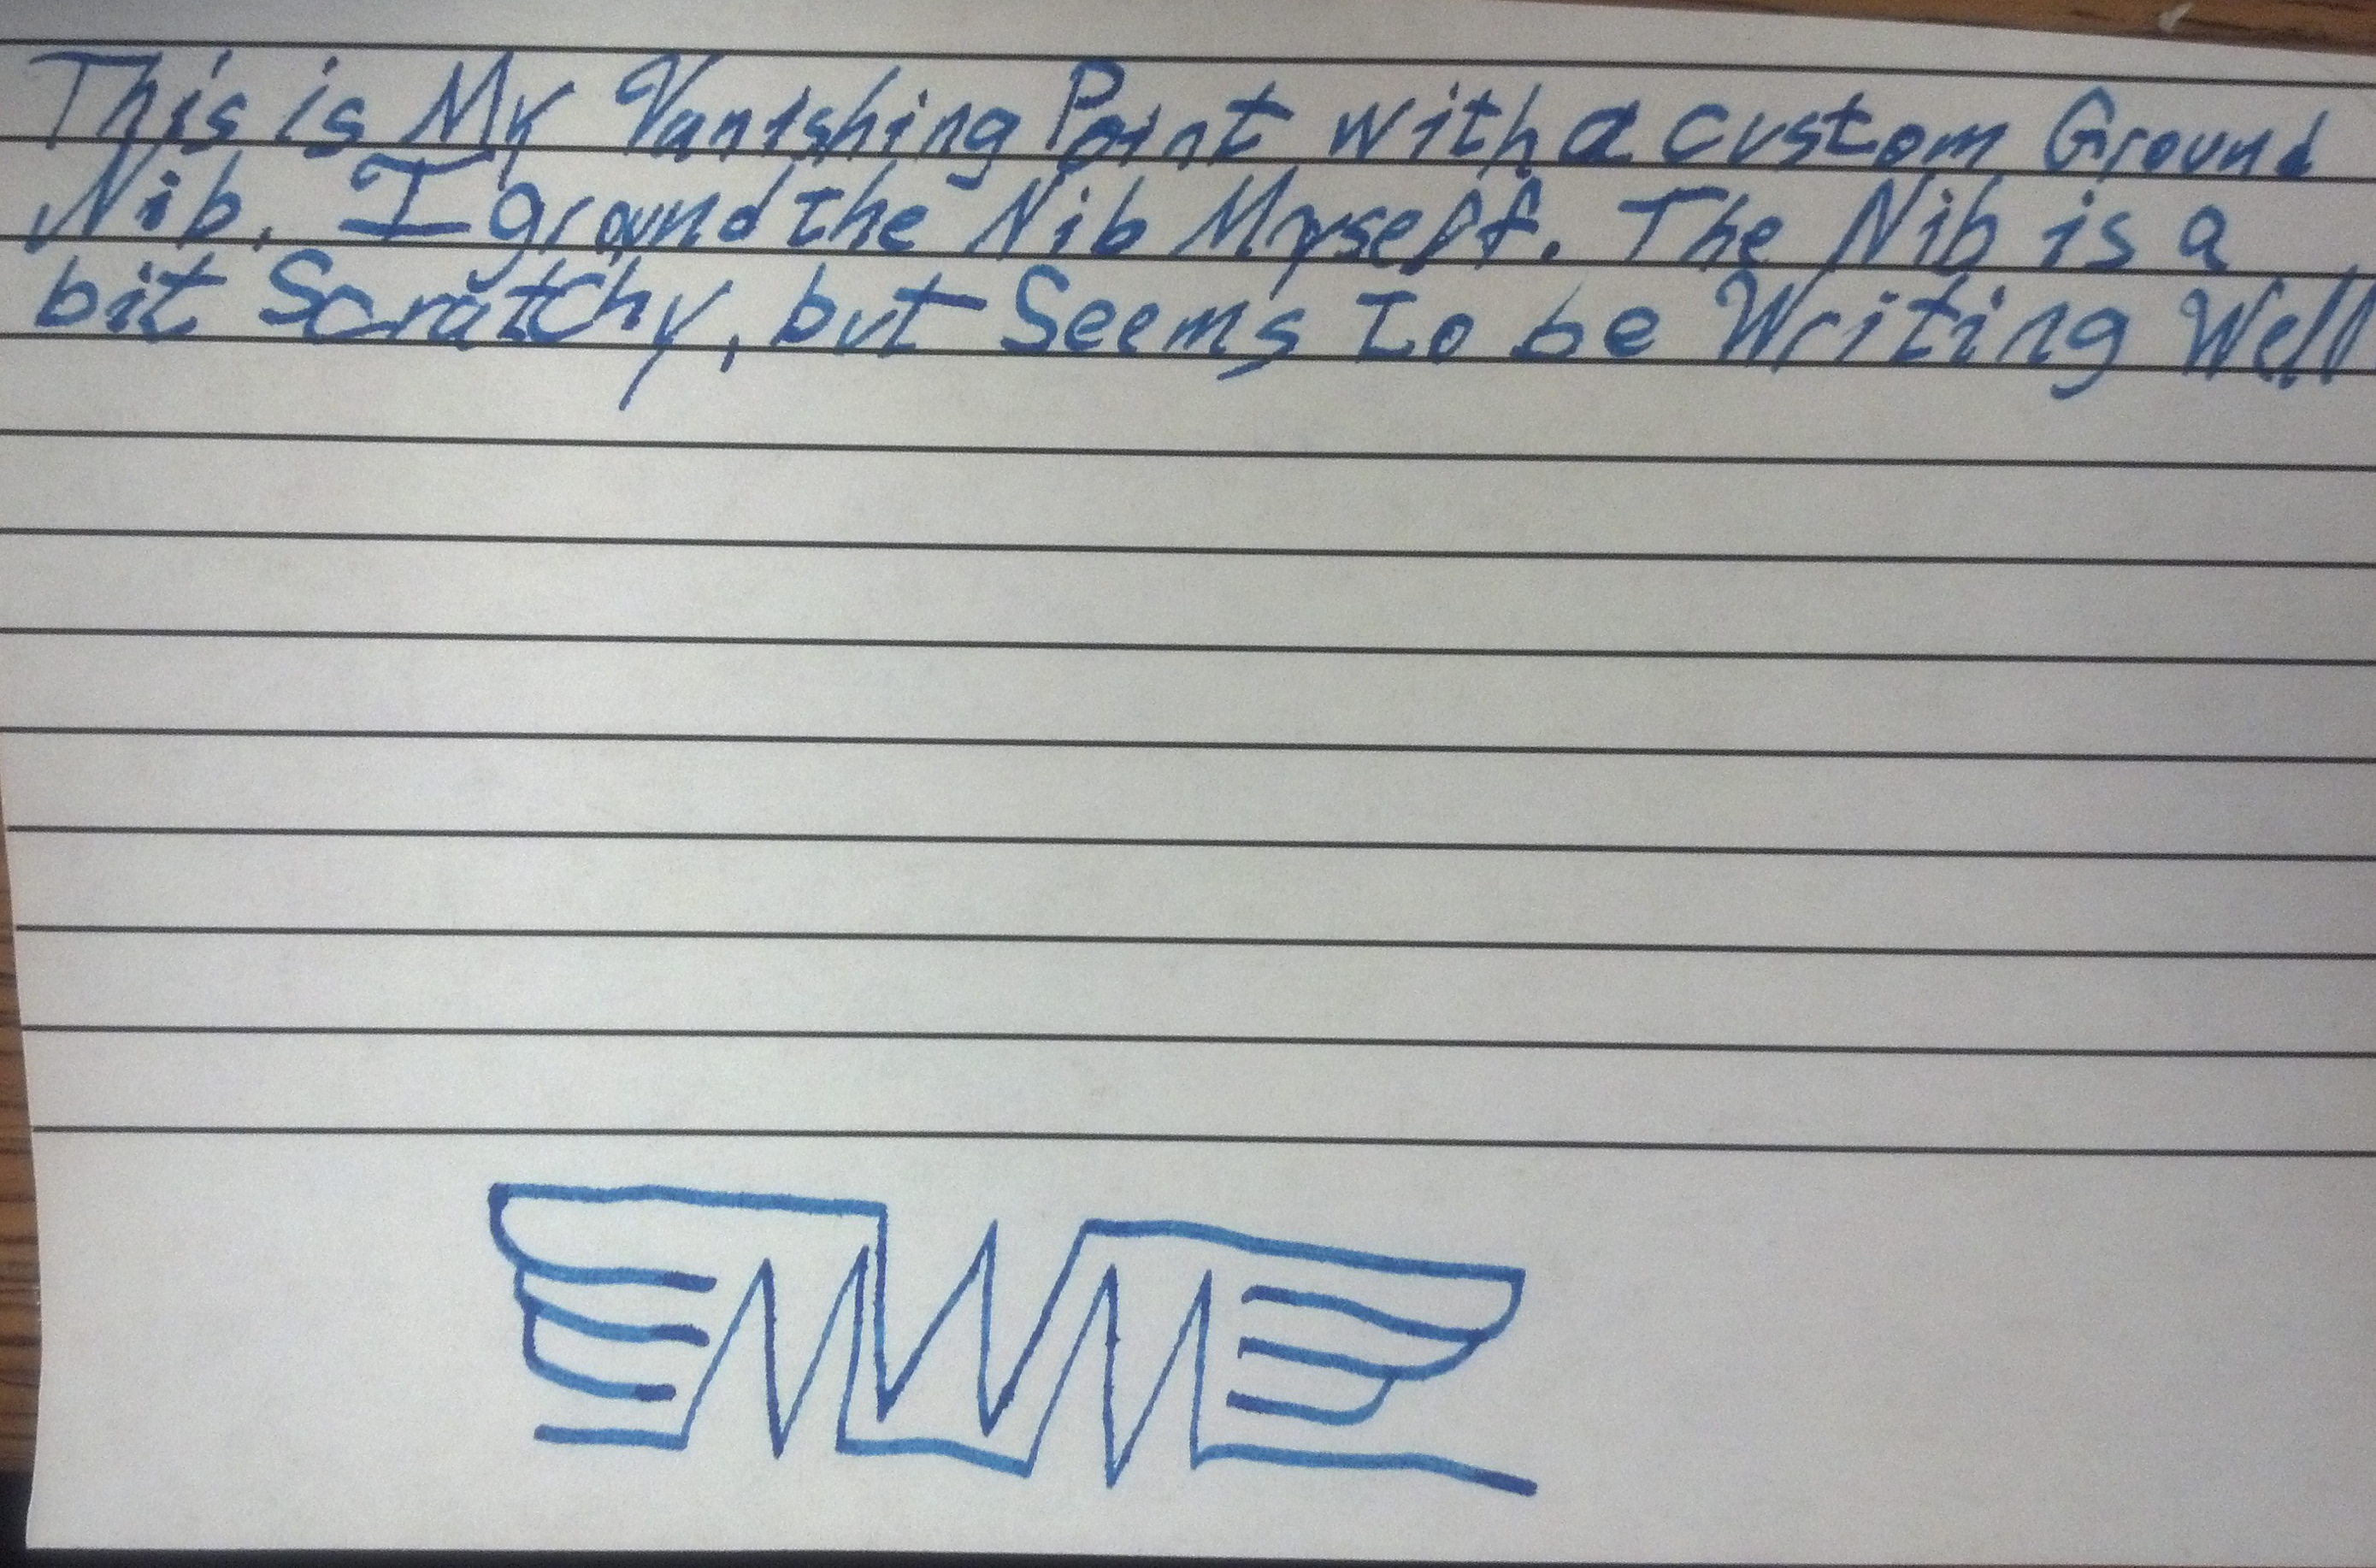 This is My Vanishing Point with a custom Ground
Nib. I ground the Nib Myself. The Nib is a
bit Scratchy, but Seems to be Writing Well